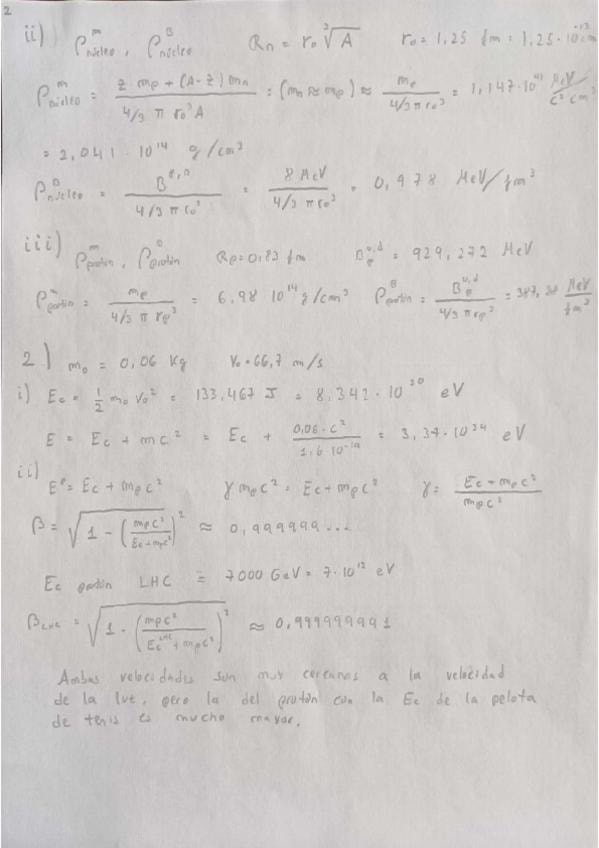 2
ii) ρ^m_núcleo , ρ^B_núcleo   R_n = r_0 ∛A   r_0 = 1,25 fm = 1,25·10^-13 cm
ρ^m_núcleo = (Z·m_p + (A-Z) m_n) / (4/3 π r_0³ A) = (m_n ≈ m_p) ≈ m_p / (4/3 π r_0³) = 1,147·10^41 MeV / (c² cm³)
= 2,041·10^14 g/cm³
ρ^B_núcleo = B / (4/3 π r_0³) = 8 MeV / (4/3 π r_0³) = 0,978 MeV/fm³
iii) ρ^m_protón , ρ^B_protón   R_p = 0,83 fm   B_p^{u,d} = 929,272 MeV
ρ^m_protón = m_p / (4/3 π r_p³) = 6,98 10^14 g/cm³   ρ^B_protón = B_p^{u,d} / (4/3 π r_p³) = 387,38 MeV/fm³
2) m_0 = 0,06 Kg   V_0 = 66,7 m/s
i) E_c = 1/2 m_0 v_0² = 133,467 J = 8,342·10^20 eV
E = E_c + m c² = E_c + (0,06·c²) / (1,6·10^-19) = 3,37·10^34 eV
ii)
E^p = E_c + m_p c²   γ m_p c² = E_c + m_p c²   γ = (E_c + m_p c²) / (m_p c²)
β = √(1 - (m_p c² / (E_c + m_p c²))²) ≈ 0,999999...
E_c protón LHC = 7000 GeV = 7·10^12 eV
β_LHC = √(1 - (m_p c² / (E_c^LHC + m_p c²))²) ≈ 0,999999991
Ambas velocidades son muy cercanas a la velocidad
de la luz, pero la del protón con la E_c de la pelota
de tenis es mucho mayor.